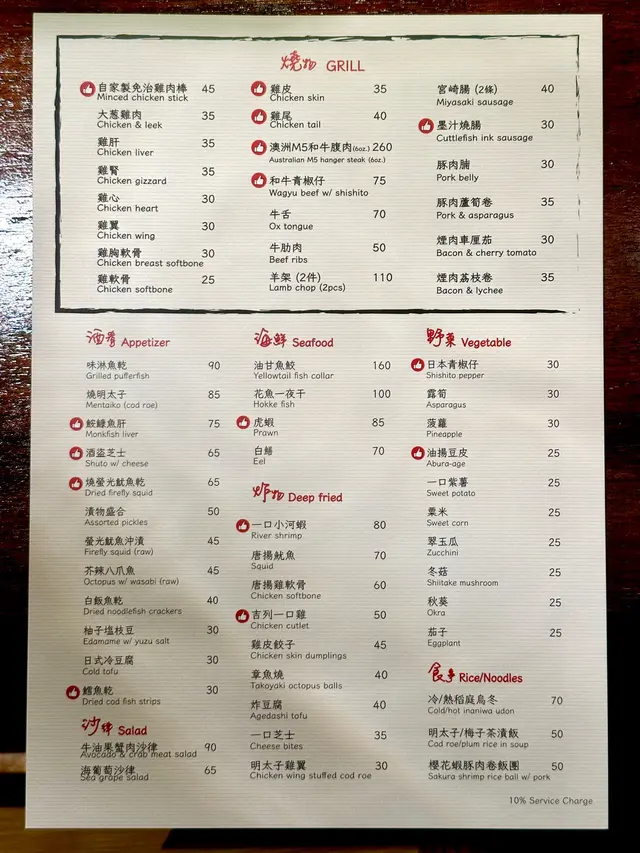 燒物 GRILL
自家製免治雞肉棒 45
Minced chicken stick
大葱雞肉 35
Chicken & leek
雞肝 35
Chicken liver
雞腎 35
Chicken gizzard
雞心 30
Chicken heart
雞翼 30
Chicken wing
雞胸軟骨 30
Chicken breast softbone
雞軟骨 25
Chicken softbone
雞皮 35
Chicken skin
雞尾 40
Chicken tail
澳洲M5和牛腹肉(6oz.) 260
Australian M5 hanger steak (6oz.)
和牛青椒仔 75
Wagyu beef w/ shishito
牛舌 70
Ox tongue
牛肋肉 50
Beef ribs
羊架 (2件) 110
Lamb chop (2pcs)
宮崎腸 (2條) 40
Miyasaki sausage
墨汁燒腸 30
Cuttlefish ink sausage
豚肉腩 30
Pork belly
豚肉蘆筍卷 35
Pork & asparagus
煙肉車厘茄 30
Bacon & cherry tomato
煙肉荔枝卷 35
Bacon & lychee
酒肴 Appetizer
味淋魚乾 90
Grilled pufferfish
燒明太子 85
Mentaiko (cod roe)
鮟鱇魚肝 75
Monkfish liver
酒盜芝士 65
Shuto w/ cheese
燒螢光魷魚乾 65
Dried firefly squid
漬物盛合 50
Assorted pickles
螢光魷魚沖漬 45
Firefly squid (raw)
芥辣八爪魚 45
Octopus w/ wasabi (raw)
白飯魚乾 40
Dried noodlefish crackers
柚子塩枝豆 30
Edamame w/ yuzu salt
日式冷豆腐 30
Cold tofu
鱈魚乾 30
Dried cod fish strips
沙律 Salad
牛油果蟹肉沙律 90
Avocado & crab meat salad
海葡萄沙律 65
Sea grape salad
海鮮 Seafood
油甘魚鮫 160
Yellowtail fish collar
花魚一夜干 100
Hokke fish
虎蝦 85
Prawn
白鱔 70
Eel
炸物 Deep fried
一口小河蝦 80
River shrimp
唐揚魷魚 70
Squid
唐揚雞軟骨 60
Chicken softbone
吉列一口雞 50
Chicken cutlet
雞皮餃子 45
Chicken skin dumplings
章魚燒 40
Takoyaki octopus balls
炸豆腐 40
Agedashi tofu
一口芝士 35
Cheese bites
明太子雞翼 30
Chicken wing stuffed cod roe
野菜 Vegetable
日本青椒仔 30
Shishito pepper
露筍 30
Asparagus
菠蘿 30
Pineapple
油揚豆皮 25
Abura-age
一口紫薯 25
Sweet potato
粟米 25
Sweet corn
翠玉瓜 25
Zucchini
冬菇 25
Shiitake mushroom
秋葵 25
Okra
茄子 25
Eggplant
食事 Rice/Noodles
冷/熱稻庭烏冬 70
Cold/hot inaniwa udon
明太子/梅子茶漬飯 50
Cod roe/plum rice in soup
櫻花蝦豚肉卷飯團 50
Sakura shrimp rice ball w/ pork
10% Service Charge